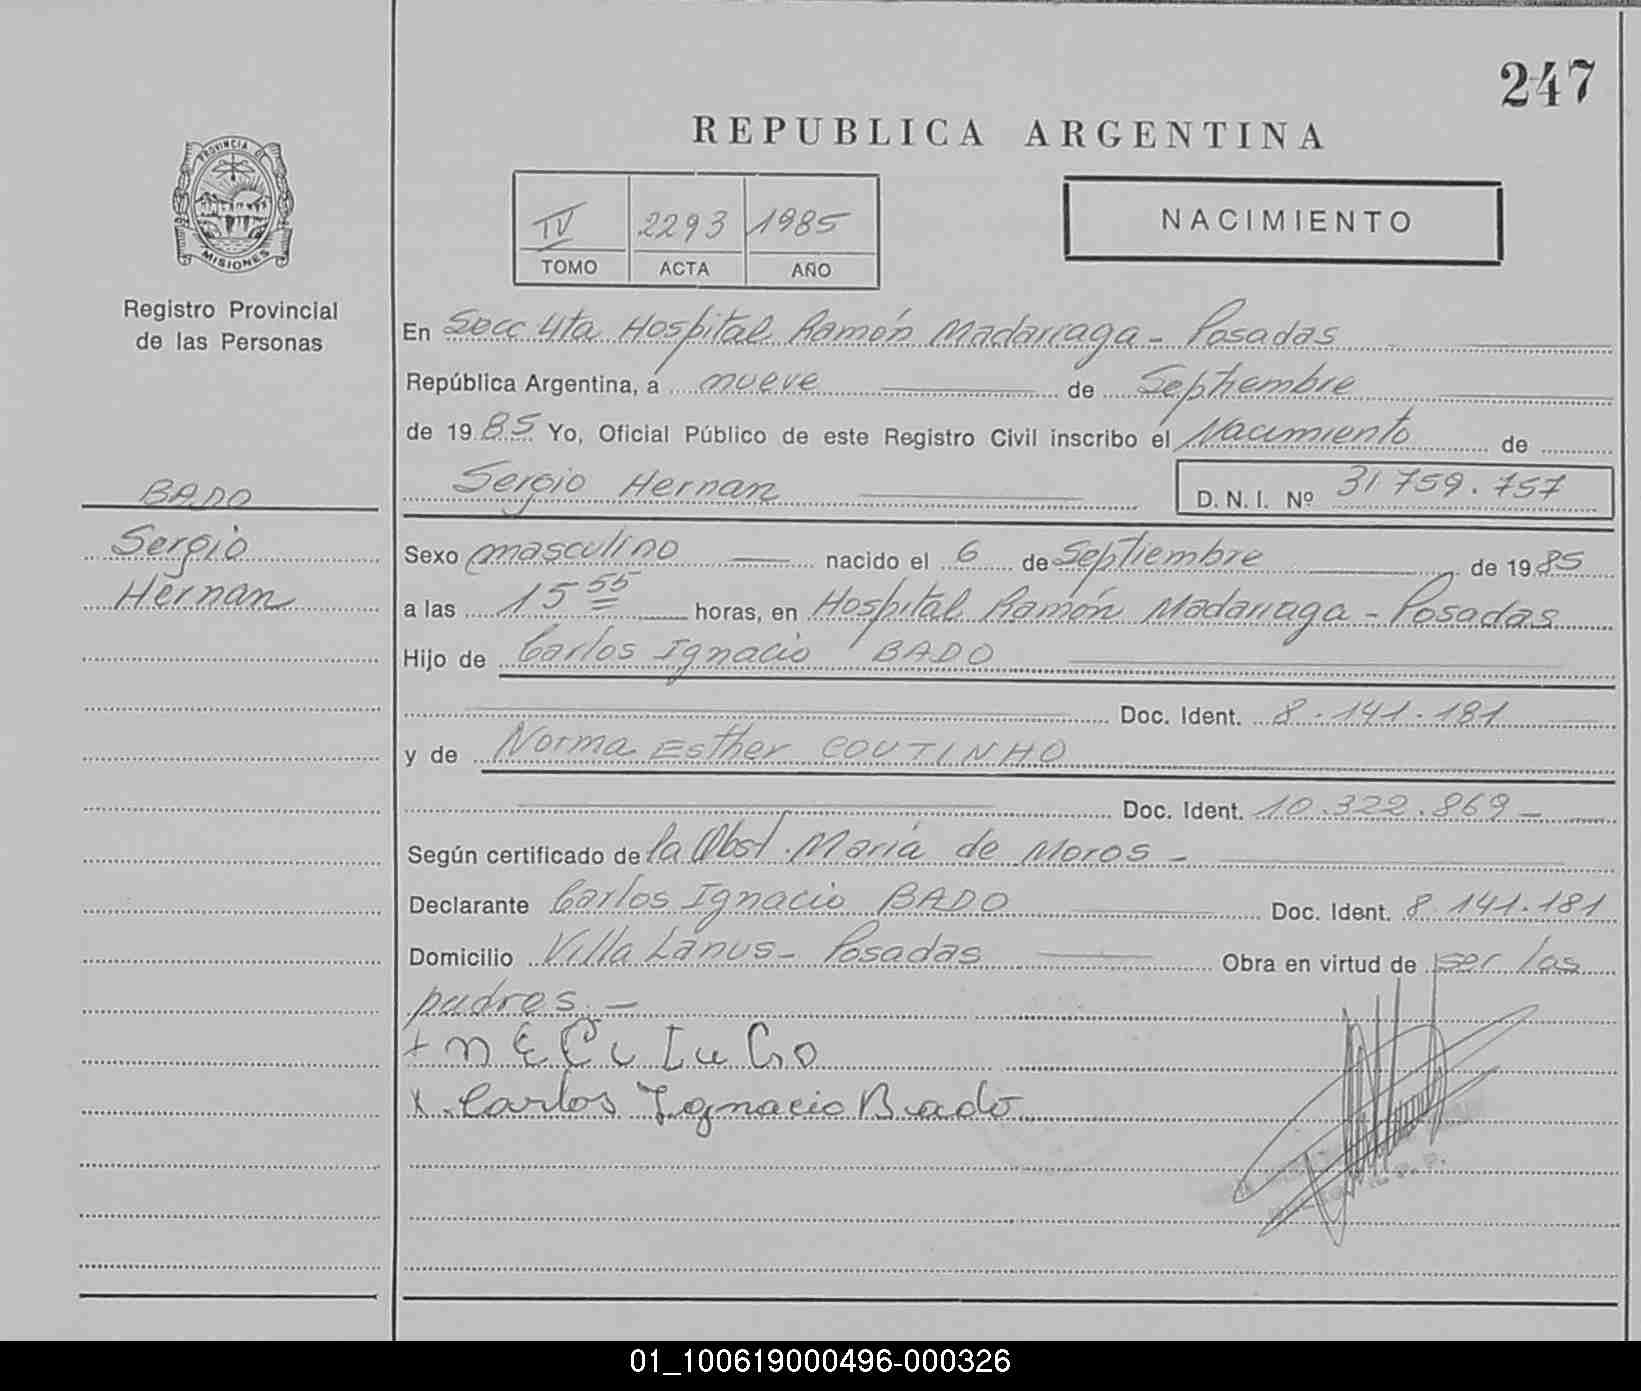 247
REPUBLICA ARGENTINA
PROVINCIA DE
MISIONES
Registro Provincial
de las Personas
IV 2293 1985
TOMO ACTA AÑO
NACIMIENTO
En Secc 4ta Hospital Ramón Madarriaga - Posadas
República Argentina, a nueve de Septiembre
de 1985 Yo, Oficial Público de este Registro Civil inscribo el Nacimiento de
Sergio Hernan D.N.I. Nº 31 759.757
BADO
Sergio
Hernan
Sexo masculino nacido el 6 de Septiembre de 1985
a las 15 55 horas, en Hospital Ramón Madarriaga - Posadas
Hijo de Carlos Ignacio BADO
Doc. Ident. 8.141.181
y de Norma Esther COUTINHO
Doc. Ident. 10.322.869 -
Según certificado de la Obst. María de Moros -
Declarante Carlos Ignacio BADO Doc. Ident. 8.141.181
Domicilio Villa Lanus - Posadas Obra en virtud de ser los
padres. -
x Carlos Ignacio Bado
01_100619000496-000326